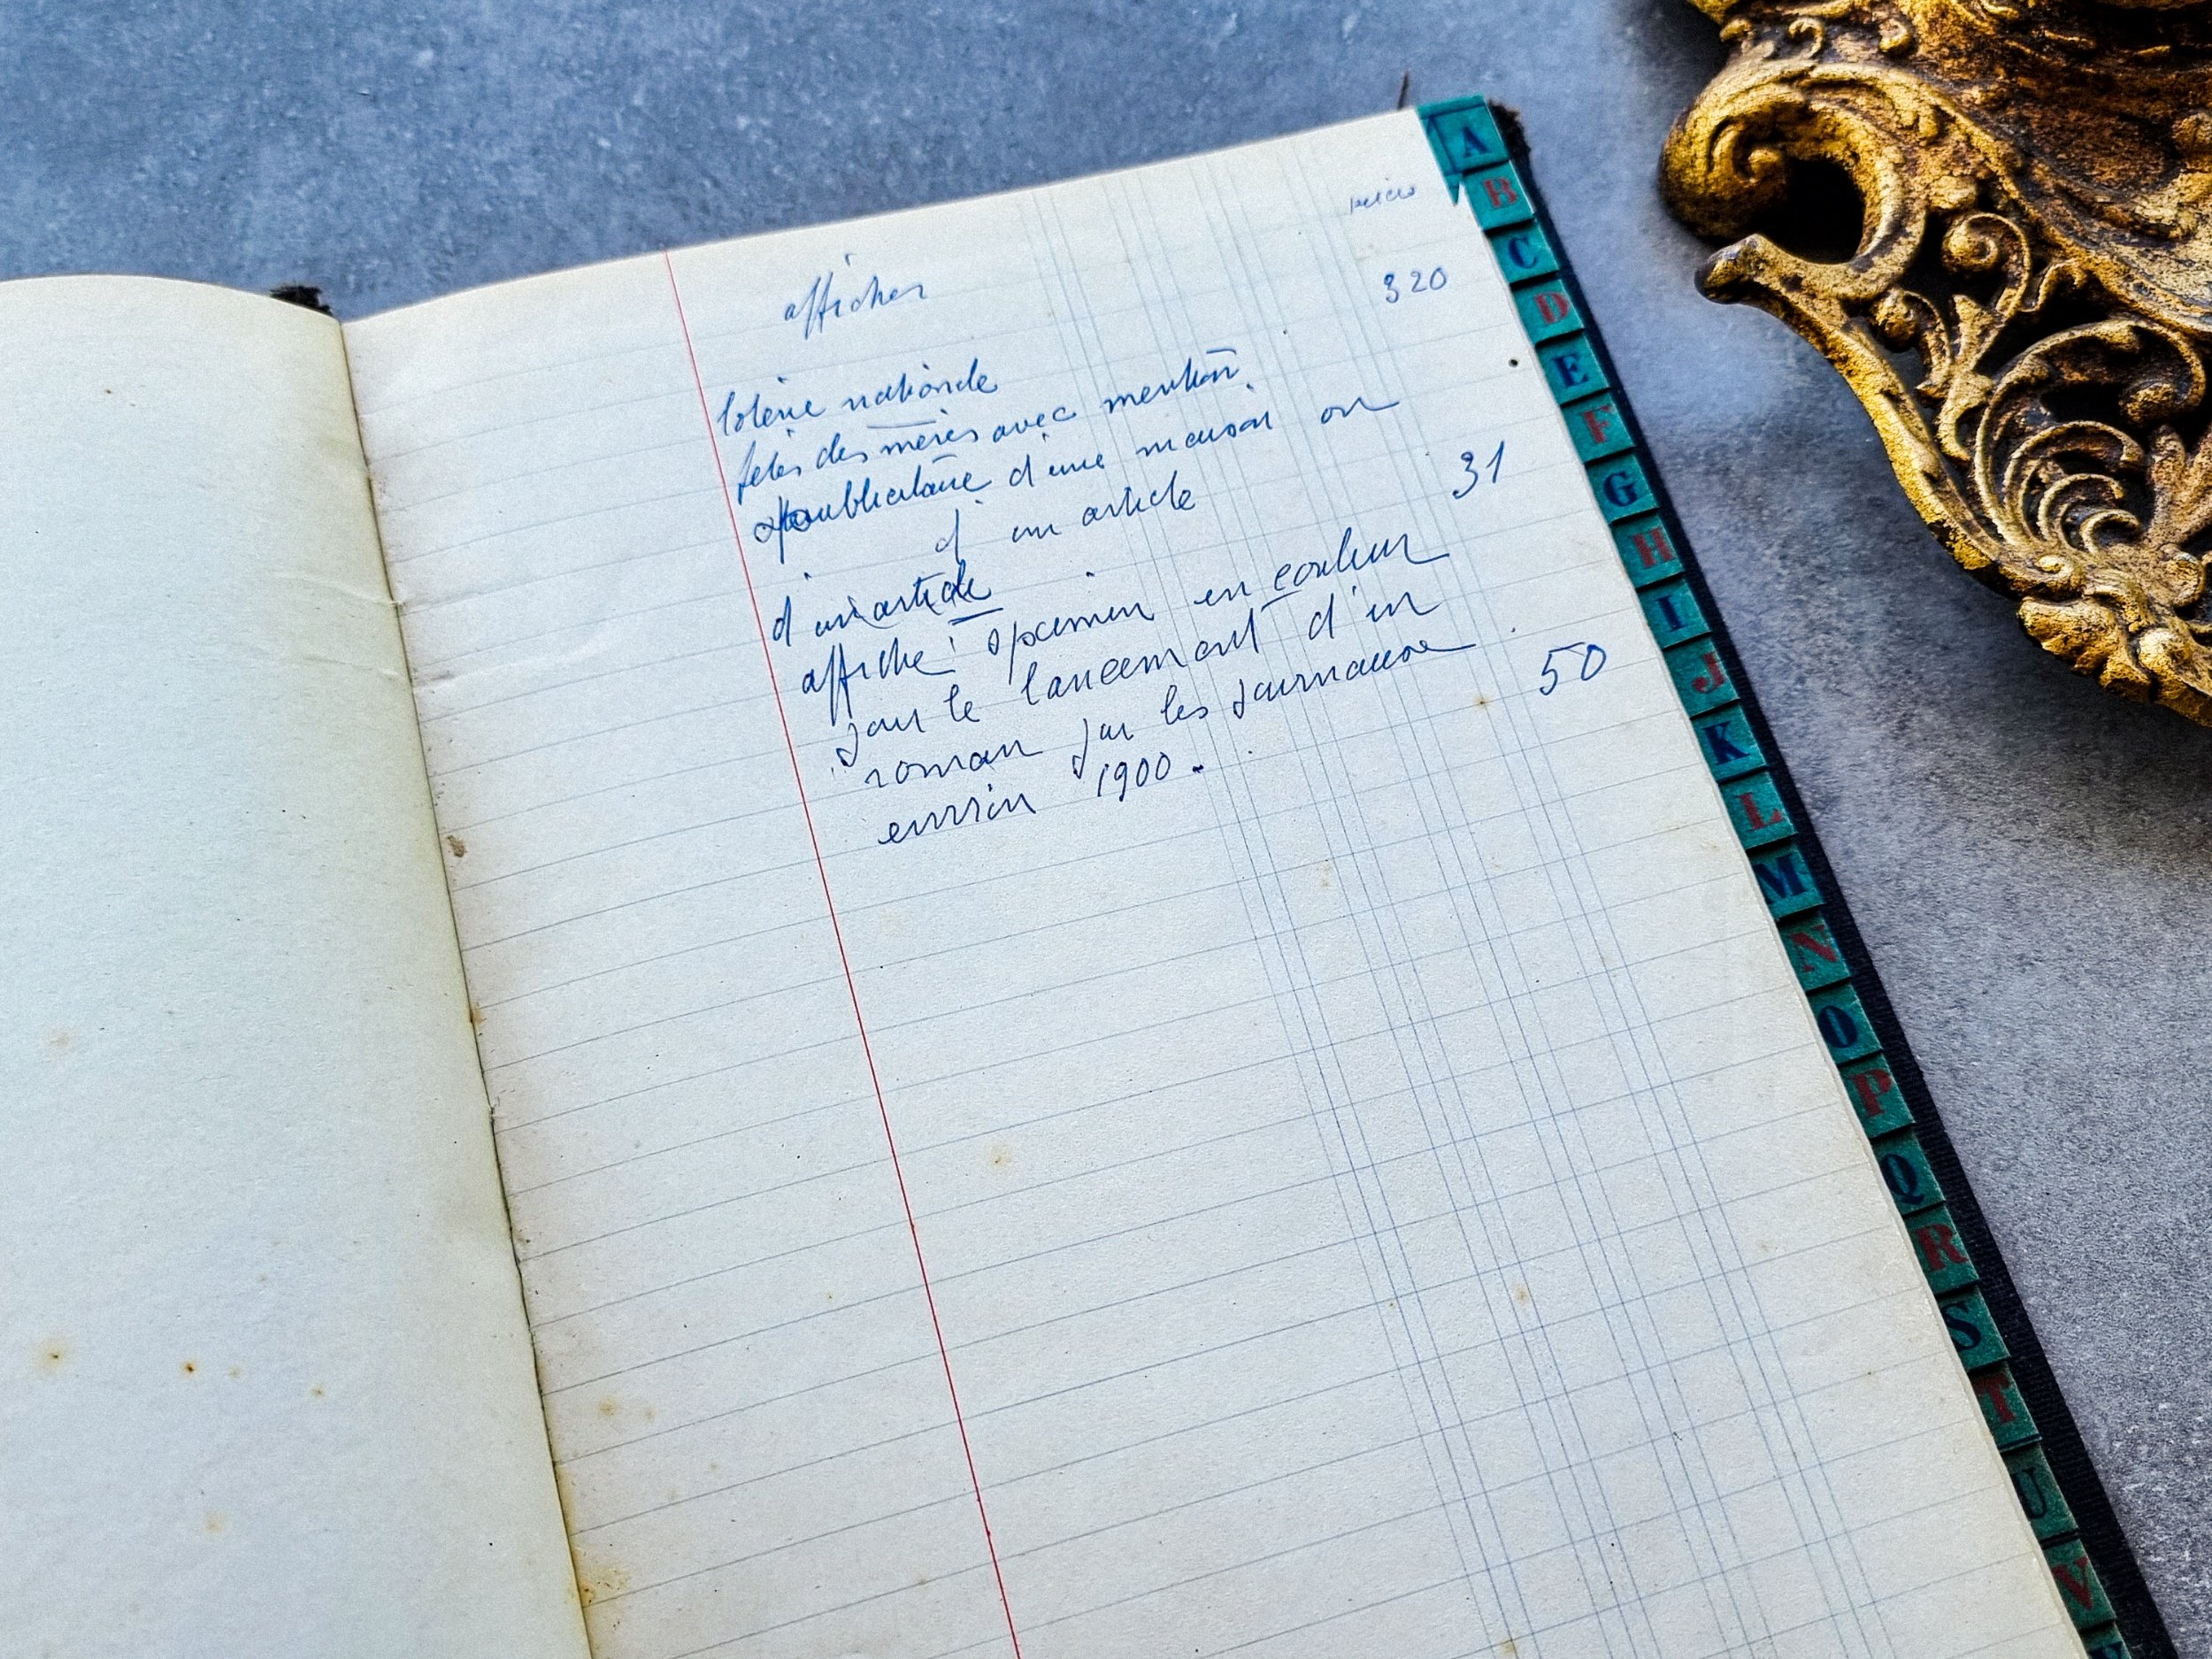 affiches
320
loterie nationale
fêtes des mères avec mention
publicitaire d'une maison ou
d'un article
31
d'un article
affiche : spécimen en couleur
pour le lancement d'un
roman par les journaux
50
environ 1900.
A
B
C
D
E
F
G
H
I
J
K
L
M
N
O
P
Q
R
S
T
U
V